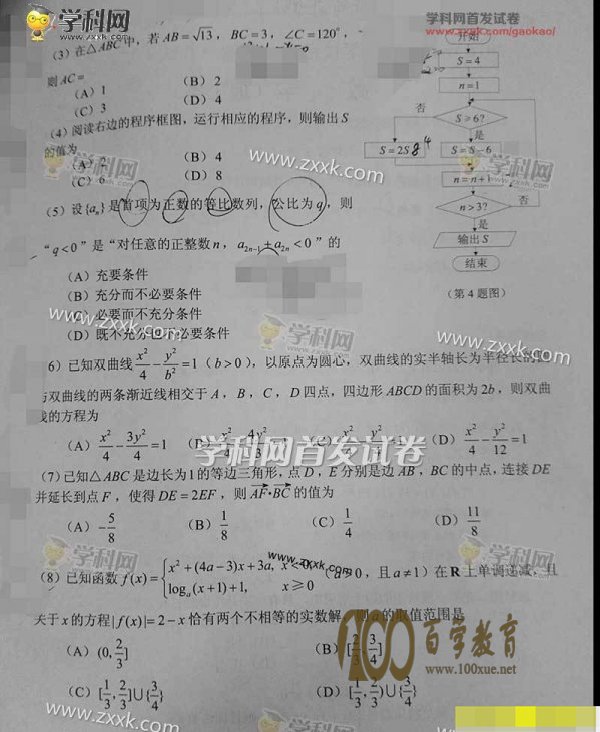 学科网
WWW.ZXXK.COM
学科网首发试卷
www.zxxk.com/gaokao/
(3) 在△ABC中，若 AB=√13，BC=3，∠C=120°，
则AC=
(A) 1
(B) 2
(C) 3
(D) 4
(4) 阅读右边的程序框图，运行相应的程序，则输出 S
的值为
(A) 2
(B) 4
(C) 6
(D) 8
开始
S=4
n=1
S≥6?
否
是
S=2S
S=S-6
n=n+1
n>3?
否
是
输出 S
结束
(第4题图)
(5) 设{aₙ}是首项为正数的等比数列，公比为q，则
“q<0”是“对任意的正整数n，a₂ₙ₋₁+a₂ₙ<0”的
(A) 充要条件
(B) 充分而不必要条件
(C) 必要而不充分条件
(D) 既不充分也不必要条件
6) 已知双曲线 x²/4 - y²/b² =1 (b>0)，以原点为圆心，双曲线的实半轴长为半径长的
与双曲线的两条渐近线相交于A，B，C，D四点，四边形ABCD的面积为2b，则双曲
线的方程为
(A) x²/4 - 3y²/4 =1
(B) x²/4 - 4y²/3
(C)
(D) x²/4 - y²/12 =1
学科网首发试卷
(7) 已知△ABC是边长为1的等边三角形，点D，E分别是边AB，BC的中点，连接DE
并延长到点F，使得DE=2EF，则 AF·BC 的值为
(A) -5/8
(B) 1/8
(C) 1/4
(D) 11/8
(8) 已知函数 f(x)={x²+(4a-3)x+3a, x<0, (a>0，且a≠1) 在R上单调递减，且
logₐ(x+1)+1, x≥0
关于x的方程|f(x)|=2-x恰有两个不相等的实数解，则a的取值范围是
(A) (0,2/3]
(B) [2/3,3/4]
(C) [1/3,2/3]∪{3/4}
(D) [1/3,2/3)∪{3/4}
100百学教育
www.100xue.net
www.zxxk.com
学科网